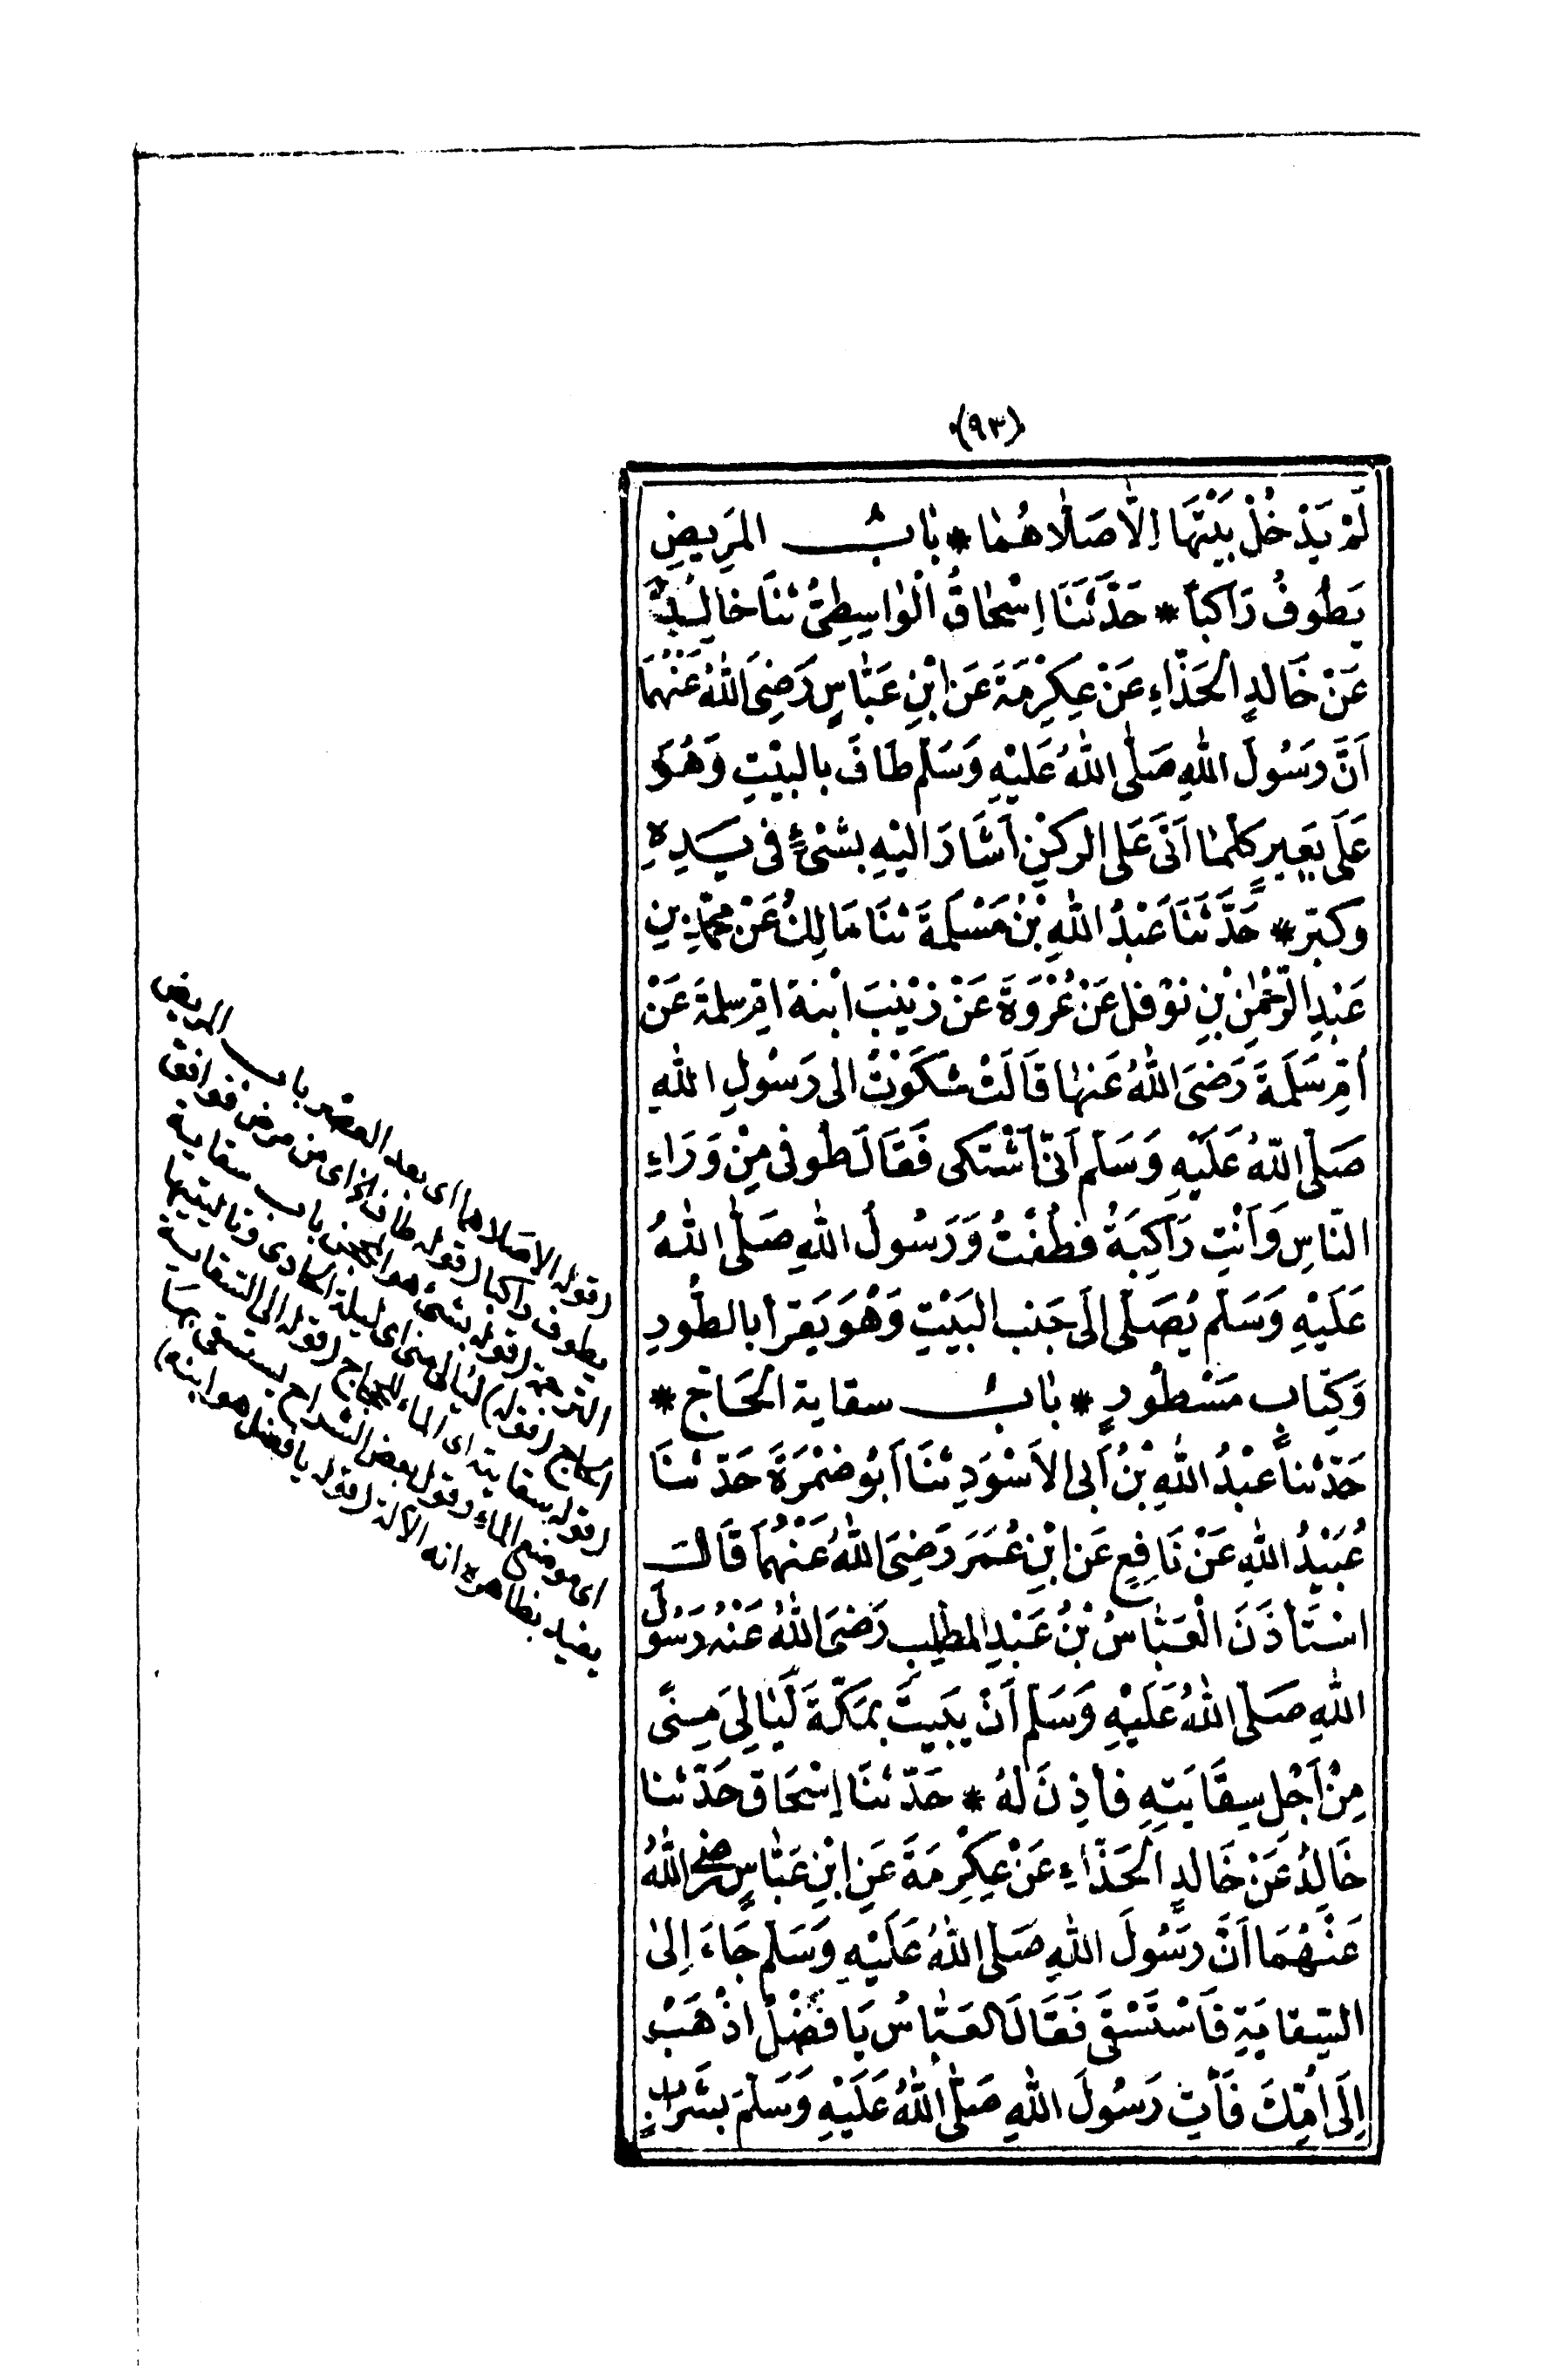 (٩٣)
لَمْ يَدْخُلْ بَيْتَهَا اِلَّا صَلَّاهُمَا * بَابُ المَرِيضِ
يَطُوفُ رَاكِبًا * حَدَّثَنَا اِسْحَاقُ الْوَاسِطِيُّ ثنَا خَالِدٌ
عَنْ خَالِدٍ الْحَذَّاءِ عَنْ عِكْرِمَةَ عَنِ ابْنِ عَبَّاسٍ رَضِيَ اللهُ عَنْهُمَا
اَنَّ رَسُولَ اللهِ صَلَّى اللهُ عَلَيْهِ وَسَلَّمَ طَافَ بِالبَيْتِ وَهُوَ
عَلَى بَعِيرٍ كُلَّمَا اَتَى عَلَى الركْنِ اَشَارَ اِليْهِ بشَىْءٍ فى يَدِهِ
وَكبّر * حَدَّثَنَا عَبْدُ اللهِ بْنُ مَسْلَمَةَ ثنَا مَالِكٌ عَنْ مُحَمَّدِ بنِ
عَبْدِ الرَّحْمٰنِ بْنِ نوْفلٍ عَنْ عُرْوَةَ عَنْ زَيْنَبَ ابْنة امّ سلمةَ عَنْ
أمِّ سَلَمَةَ رَضِىَ اللهُ عَنها قَالَتْ شَكَوْتُ الى رَسُولِ اللهِ
صَلَّى اللهُ عَلَيْهِ وَسَلَّمَ اَنّى اَشْتَكى فَقَالَ طُوفى مِنْ وَرَاءِ
النّاسِ وَاَنْتِ رَاكِبَةٌ فطُفْتُ وَرَسُولُ اللهِ صَلَّى اللهُ
عَلَيْهِ وَسَلَّمَ يُصَلّى اِلَى جَنبِ البَيْتِ وَهُوَ يَقرأ بالطُورِ
وَكِتَابٍ مَسْطُورٍ * بَابُ سقاية الحَاجّ *
حَدّثنا عبْدُ اللهِ بْنُ أبى الاَسْوَدِ ثنَا أبُو ضمْرَةَ حَدّثنَا
عُبَيْدُ اللهِ عَنْ نَافِعٍ عَنِ ابْنِ عُمَرَ رَضِىَ اللهُ عَنْهُمَا قَالَ
اسْتَأذَنَ الْعَبَّاسُ بْنُ عَبْدِ المطلِبِ رَضِىَ اللهُ عَنْهُ رَسُولَ
اللهِ صَلّى اللهُ عَلَيْهِ وَسَلّم اَنْ يَبِيتَ بمَكّةَ لَيَالِىَ مِنًى
مِنْ اَجْلِ سِقَايَتِهِ فأذِنَ لَهُ * حَدّثنَا اِسْحَاق حَدّثنا
خَالِدٌ عَنْ خَالدٍ الحَذّاءِ عَنْ عِكْرِمَةَ عَنِ ابْنِ عَبَّاسٍ رضى اللهُ
عَنْهُمَا اَنَّ رسُولَ اللهِ صَلى اللهُ عَلَيْهِ وَسَلّم جَاءَ اِلَى
السِّقايَةِ فَاسْتَسْقَى فَقَالَ العَبّاسُ يَا فَضْلُ اذْهَبْ
اِلَى اُمِّكَ فَأتِ رَسُولَ اللهِ صَلَّى اللهُ عَلَيْهِ وَسَلّمَ بشَرَابٍ
(قوله الا صلاهما اى بعد العصر باب المريض
يطوف راكبا (قوله طاف الخ اى من مرض فوافق
الترجمة (قوله بشئ هو المحجن باب سقاية
الحاج (قوله) ليالى منى اى ليلة الحادى وتالييتيها
(قوله سقايته اى الماء للحجاج (قوله الى السقاية
اى موضع الماء وقول بعض الشراح يستسقى بها
يفيد بظاهره انه الآلة (قوله يا فضل هو ابنه)